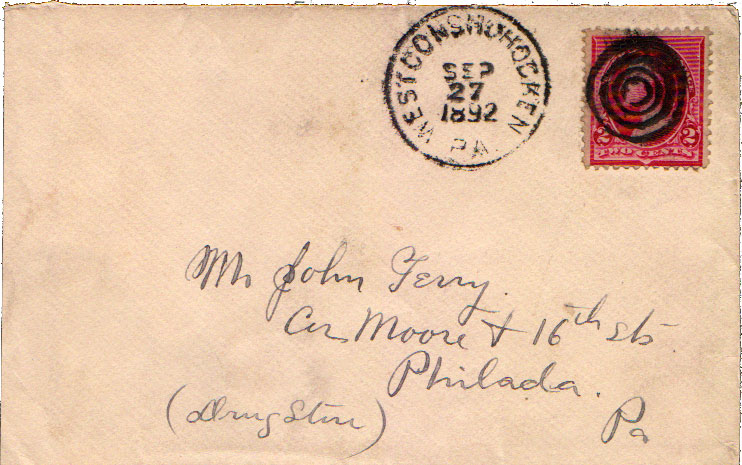 WEST CONSHOHOCKEN
SEP
27
1892
PA.
2 2
TWO CENTS
Mr John Terry.
Cor Moore & 16th sts
Philada.
(Drug Store)
Pa